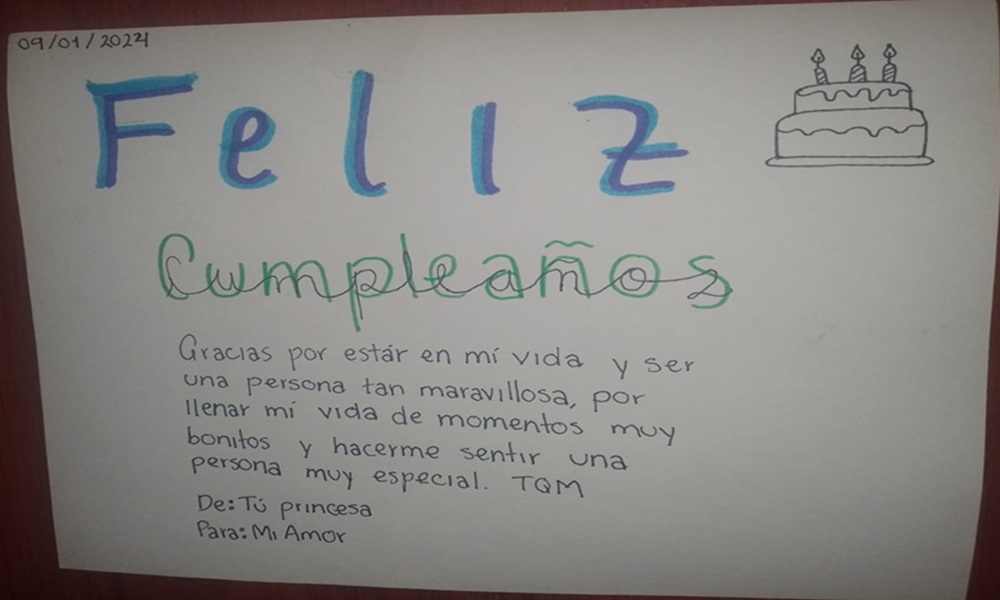 09/01/2024
Feliz
Cumpleaños
Gracias por estár en mí vida y ser
una persona tan maravillosa, por
llenar mí vida de momentos muy
bonitos y hacerme sentir una
persona muy especial. TQM
De: Tú princesa
Para: Mi Amor